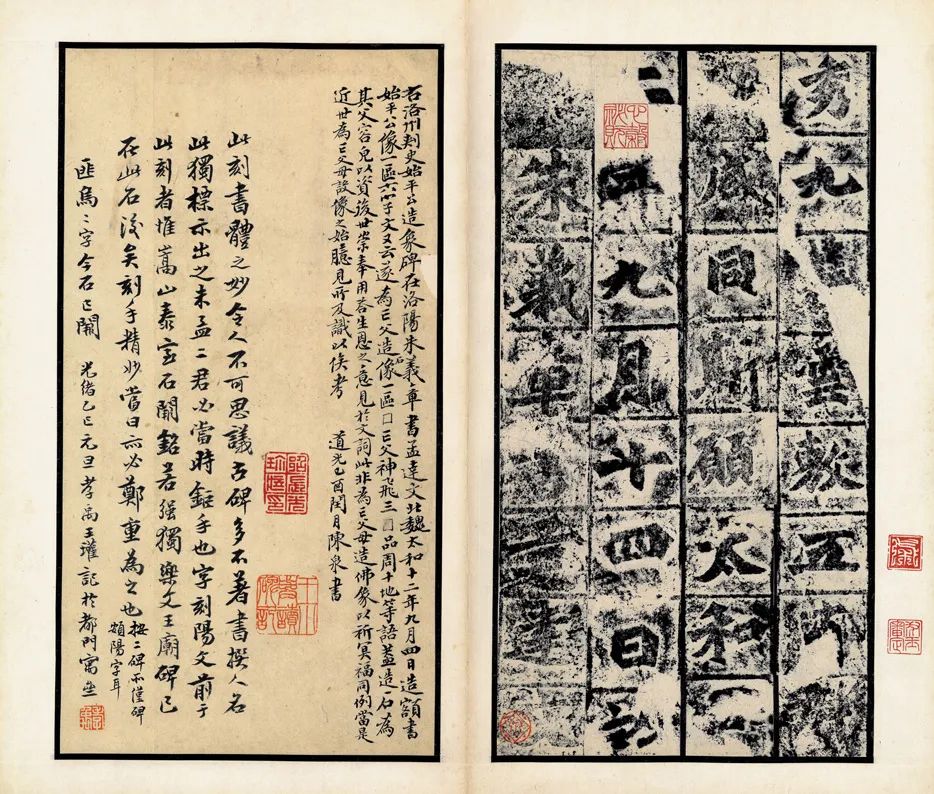 秀九雲敷五有
咸同斯願太和
二年九月十四日訖
朱義章
右洛州刺史始平公造象碑在洛陽朱義章書孟達文北魏太和十二年九月四日造額書
始平公像一區六小字文又云遂為亡父造石像一區□亡父神飛三□品周十地等語蓋造一石為
其父容皃以資後世崇奉用答生恩之意見於文詞此非為亡父母造佛像以祈冥福同例當是
近世為亡父母設像之始臆見所及識以俟考 道光乙酉閏月陳泉書
此刻書體之妙令人不可思議古碑多不著書撰人名
此獨標示出之朱孟二君必當時鉅手也字刻陽文前于
此刻者惟嵩山泰室石闕銘若強獨樂文王廟碑已
在此石後矣刻手精妙當日亦必鄭重為之也 按二碑不僅碑
額陽字耳
匪烏二字今石已闕 光緒乙巳元旦孝禹王瓘記於都門寓